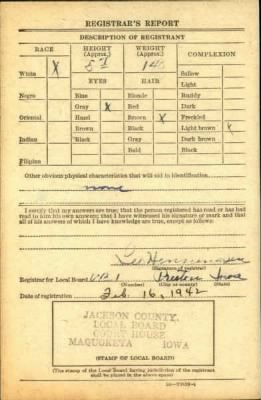 REGISTRAR'S REPORT
DESCRIPTION OF REGISTRANT
RACE
HEIGHT
(Approx.)
WEIGHT
(Approx.)
COMPLEXION
White X
5 7
140
Sallow
Light
EYES
HAIR
Ruddy
Negro
Blue
Blonde
Dark
Gray X
Red
Freckled
Oriental
Hazel
Brown X
Light brown X
Brown
Black
Dark brown
Indian
Black
Gray
Black
Bald
Filipino
Other obvious physical characteristics that will aid in identification
none
I certify that my answers are true; that the person registered has read or has had
read to him his own answers; that I have witnessed his signature or mark and that
all of his answers of which I have knowledge are true, except as follows:
(Signature of registrar)
Registrar for Local Board 1 Preston Iowa
(Number) (City or county) (State)
Date of registration Feb. 16, 1942
JACKSON COUNTY
LOCAL BOARD
COURT HOUSE
MAQUOKETA IOWA
(STAMP OF LOCAL BOARD)
(The stamp of the Local Board having jurisdiction of the registrant
shall be placed in the above space)